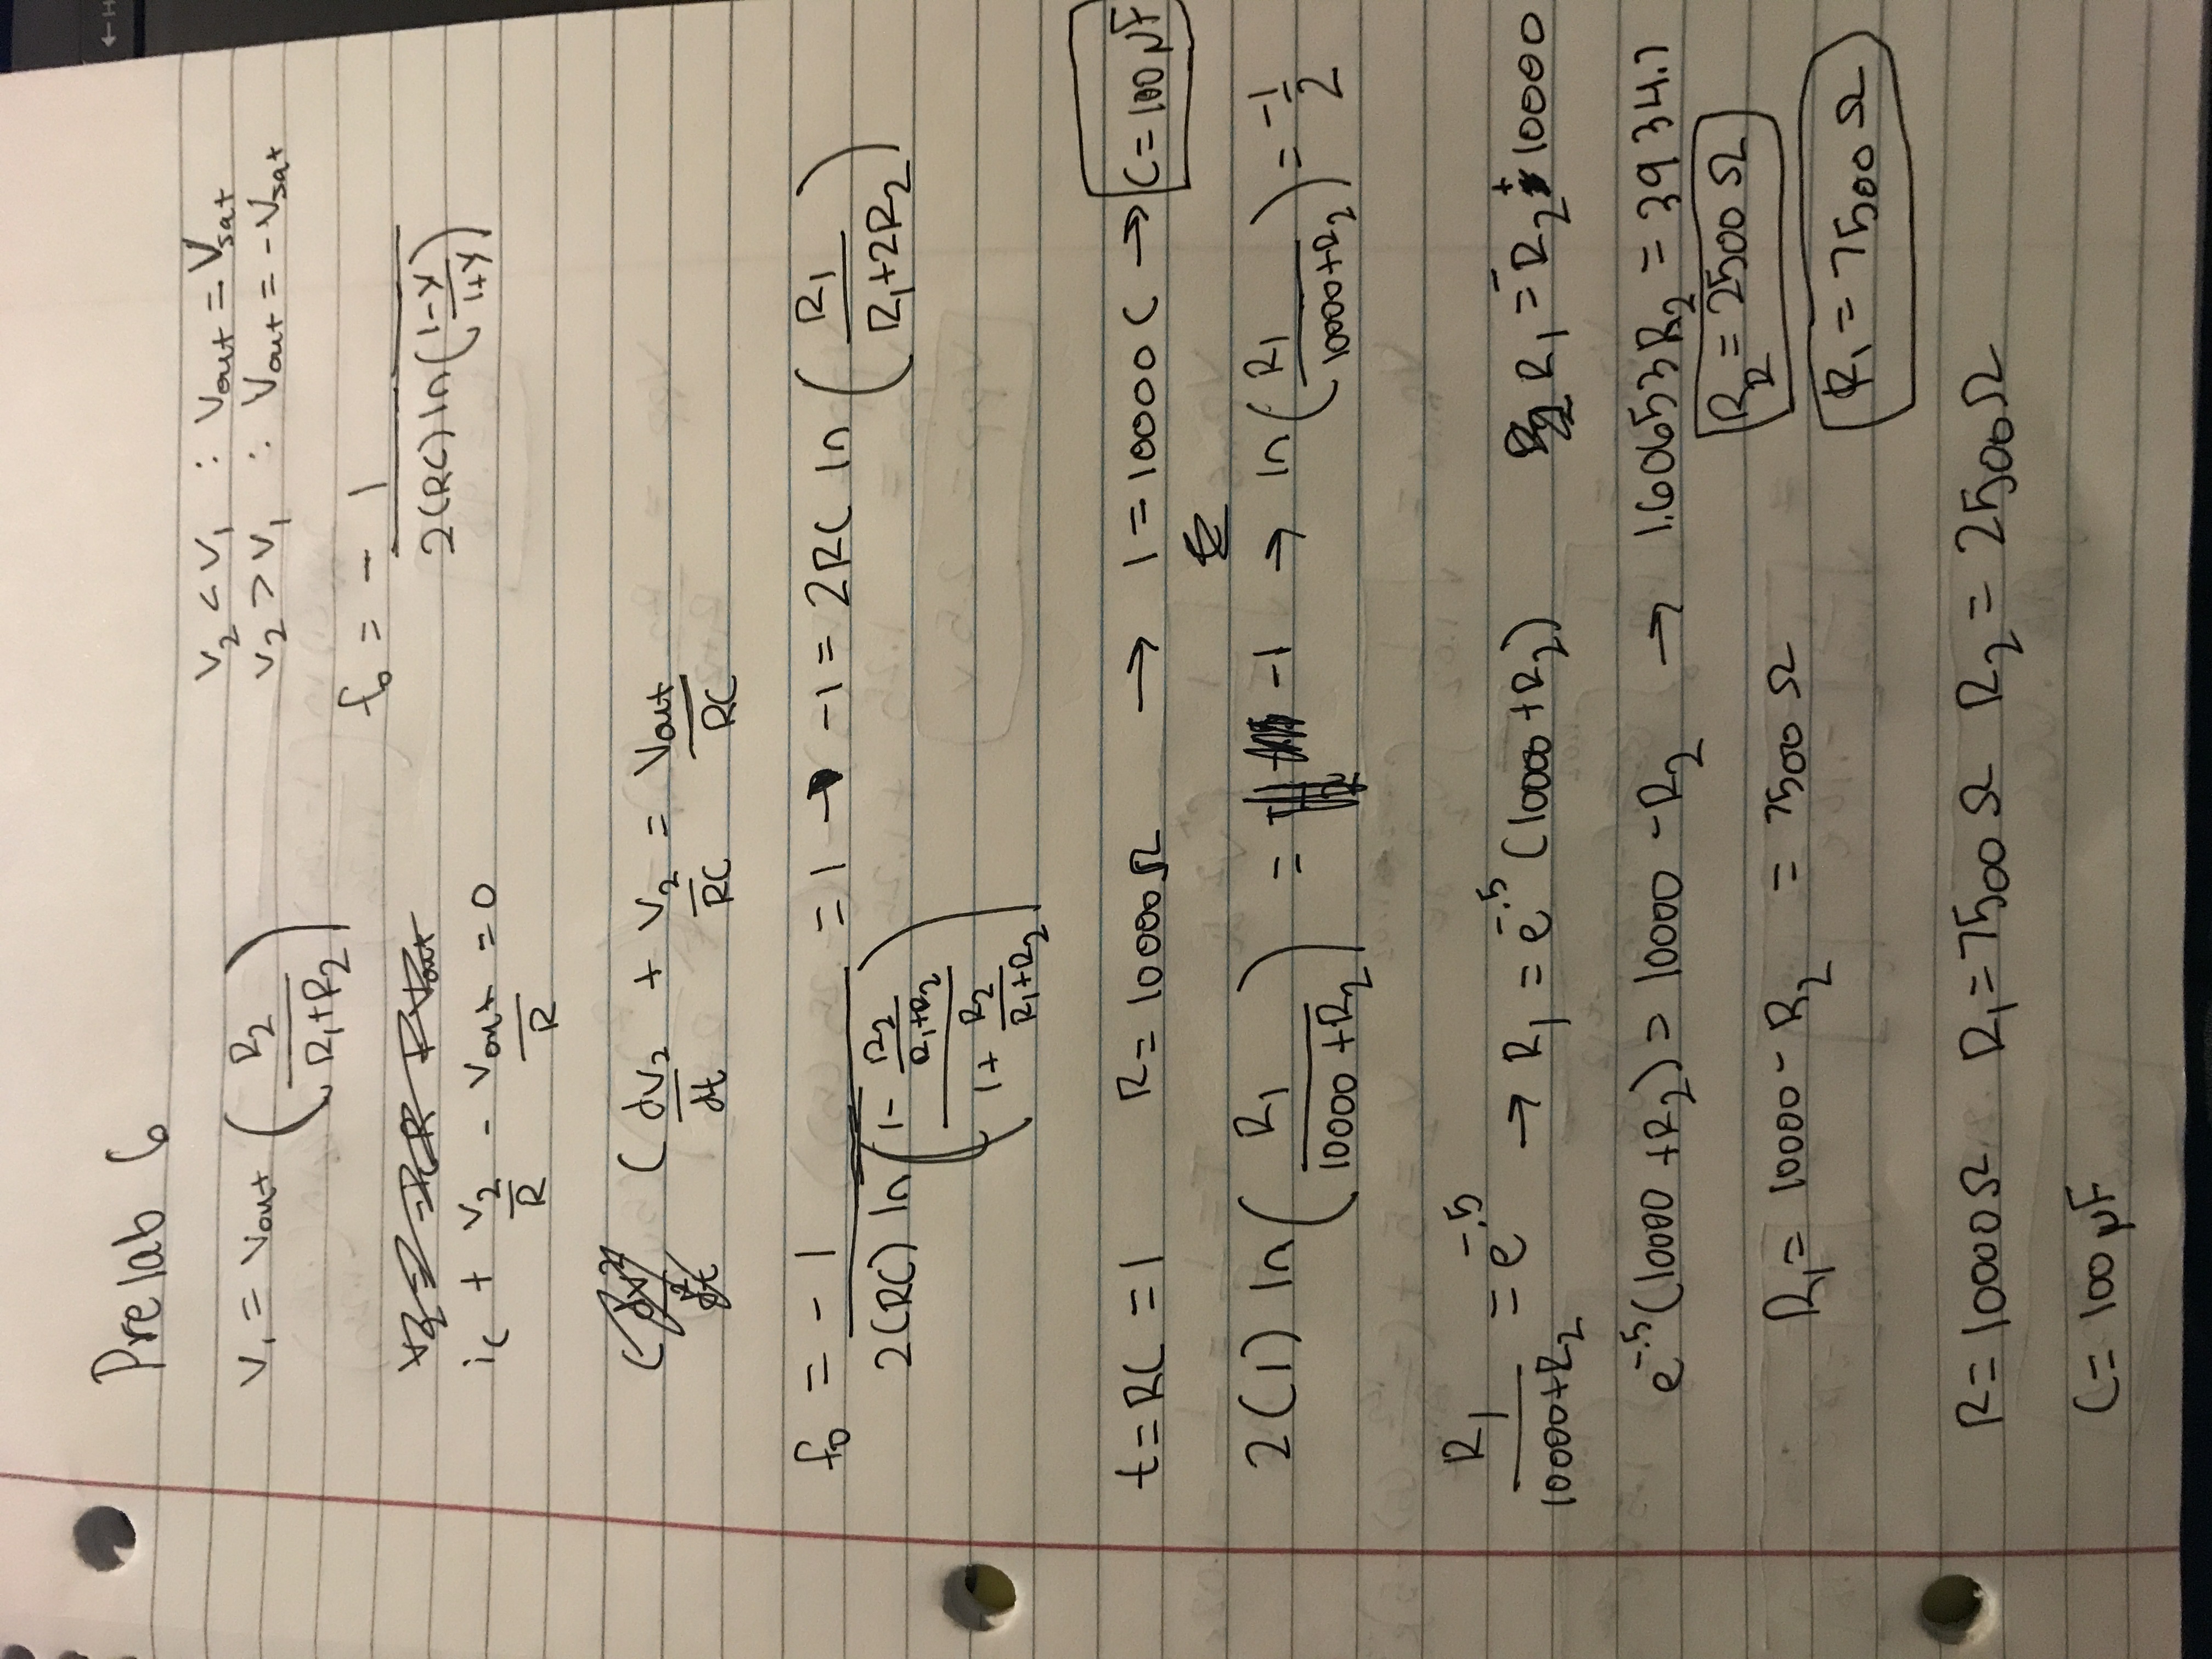 Prelab 6
V₁ = Vout (R₂ / (R₁+R₂))
V₂ < V₁ : Vout = Vsat
V₂ > V₁ : Vout = -Vsat
f₀ = - 1 / (2(RC) ln((1-γ)/(1+γ)))
ic + V₂/R - Vout/R = 0
C dv₂/dt + V₂/RC = Vout/RC
f₀ = - 1 / (2(RC) ln((1 - R₂/(R₁+R₂)) / (1 + R₂/(R₁+R₂)))) = 1 → -1 = 2RC ln(R₁ / (R₁+2R₂))
t = RC = 1 R = 10000Ω → 1 = 10000 C → C = 100 μF
2(1) ln(R₁ / (10000 + R₂)) = -1 → ln(R₁ / (10000+R₂)) = -1/2
R₁ / (10000+R₂) = e^-.5 → R₁ = e^-.5 (10000 + R₂) R₁ = -R₂ + 10000
e^-.5 (10000 + R₂) = 10000 - R₂ → 1.60653 R₂ = 3934.7
R₂ = 2500 Ω
R₁ = 10000 - R₂ = 7500 Ω
R₁ = 7500 Ω
R = 10000Ω R₁ = 7500 Ω R₂ = 2500Ω
C = 100 μF